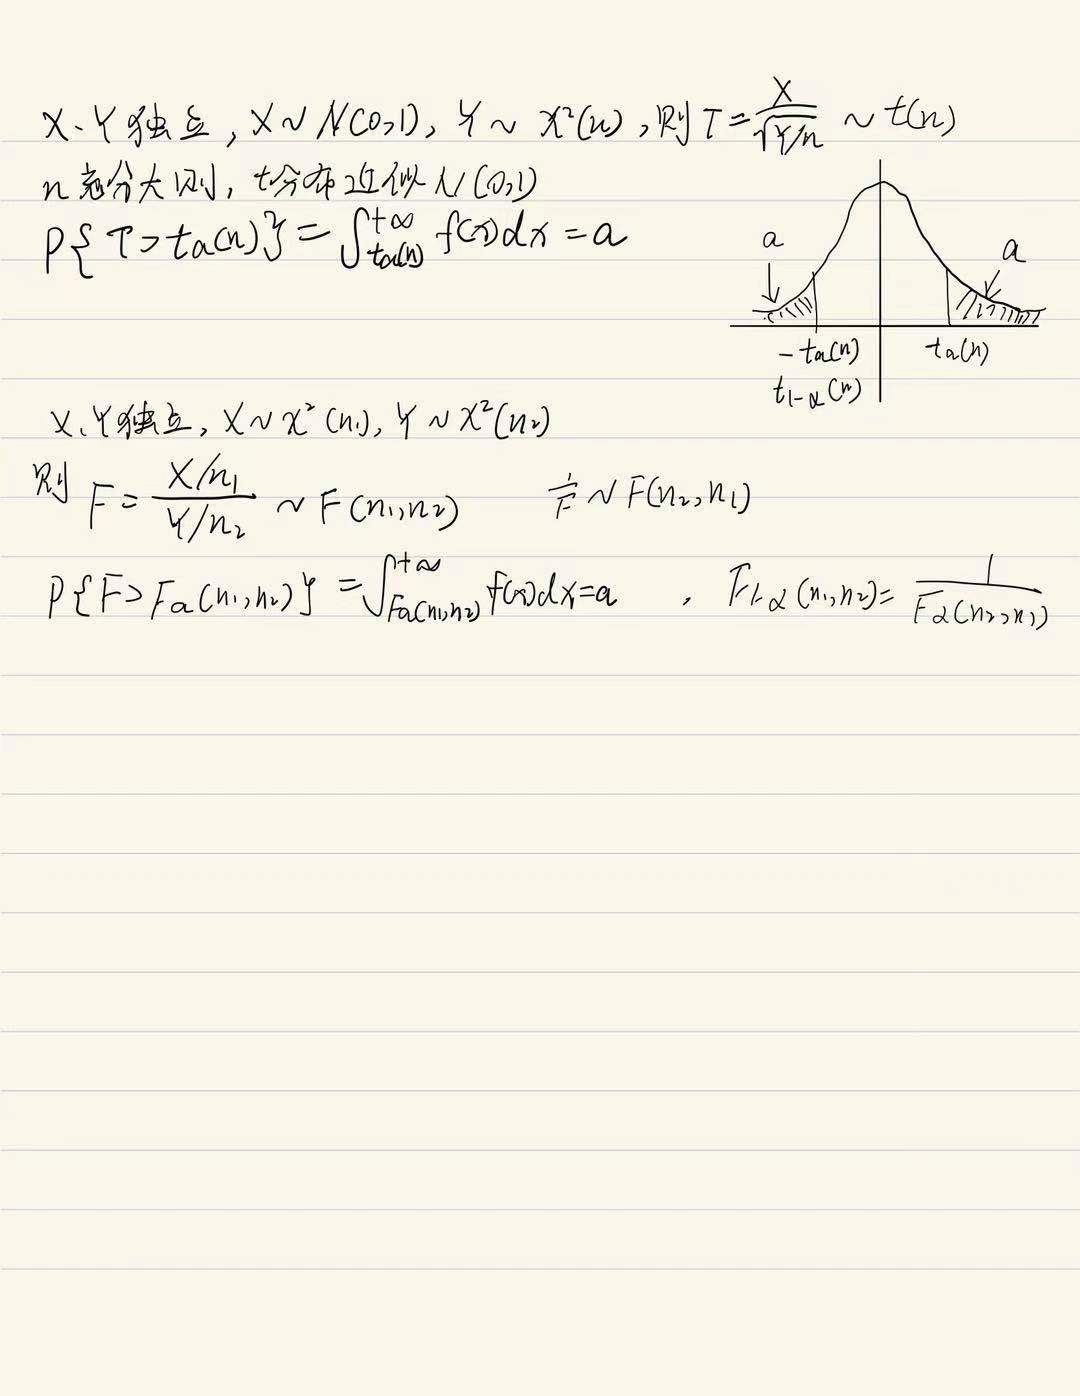 X、Y独立, X~N(0,1), Y~χ²(n), 则 T=X/√(Y/n) ~ t(n)
n充分大则, t分布近似N(0,1)
P{T>ta(n)}=∫_{ta(n)}^{+∞} f(x)dx=a
a a
-ta(n) ta(n)
t1-α(n)
X、Y独立, X~χ²(n₁), Y~χ²(n₂)
则 F=(X/n₁)/(Y/n₂) ~ F(n₁,n₂) 1/F ~ F(n₂,n₁)
P{F>Fa(n₁,n₂)}=∫_{Fa(n₁,n₂)}^{+∞} f(x)dx=a , F1-α(n₁,n₂)=1/Fα(n₂,n₁)